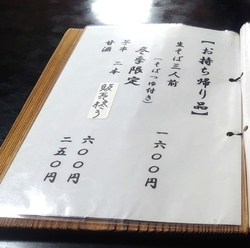 【お持ち帰り品】
生そば三人前
(そばつゆ付き)
一六〇〇円
冬季限定
芋串 二本
六〇〇円
甘酒
二五〇円
販売終り